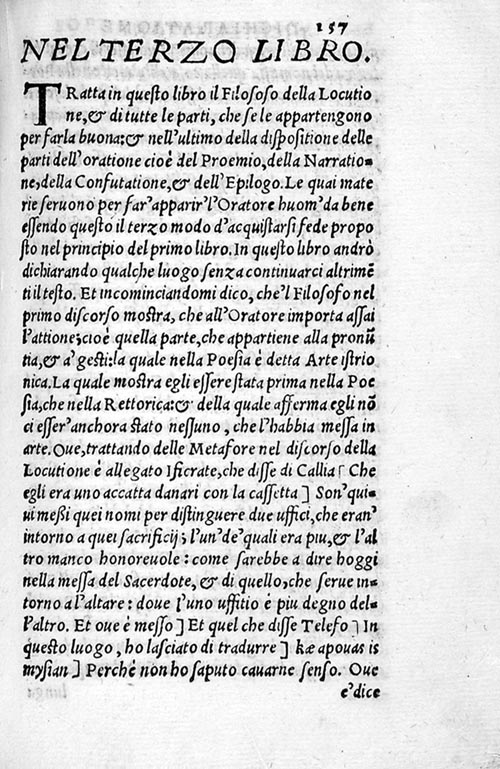 157
NEL TERZO LIBRO.
TRatta in questo libro il Filosofo della Locutio
ne,& di tutte le parti, che se le appartengono
per farla buona:& nell'ultimo della dispositione delle
parti dell'oratione cioè del Proemio,della Narratio-
ne,della Confutatione,& dell'Epilogo.Le quai mate
rie seruono per far'apparir l'Oratore huom'da bene
essendo questo il terzo modo d'acquistarsi fede propo
sto nel principio del primo libro.In questo libro andrò
dichiarando qualche luogo senza continuarci altrimẽ
ti il testo. Et incominciandomi dico, che'l Filosofo nel
primo discorso mostra, che all'Oratore importa assai
l'attione;cioè quella parte,che appartiene alla pronũ
tia,& a' gesti:la quale nella Poesia è detta Arte istrio
nica.La quale mostra egli essere stata prima nella Poe
sia,che nella Rettorica:& della quale afferma egli nõ
ci esser'anchora stato nessuno, che l'habbia messa in
arte.Oue,trattando delle Metafore nel discorso della
Locutione è allegato Ificrate,che disse di Callia[ Che
egli era uno accatta danari con la cassetta ] Son'qui-
ui meßi quei nomi per distinguere due uffici,che eran'
intorno a quei sacrificij; l'un'de'quali era piu,& l'al
tro manco honoreuole: come sarebbe a dire hoggi
nella messa del Sacerdote, & di quello,che serue in-
torno a l'altare: doue l'uno uffitio è piu degno del-
l'altro. Et oue è messo ] Et quel che disse Telefo ] In
questo luogo, ho lasciato di tradurre ] kæ apouas is
mysian ] Perché non ho saputo cauarne senso. Oue
e'dice